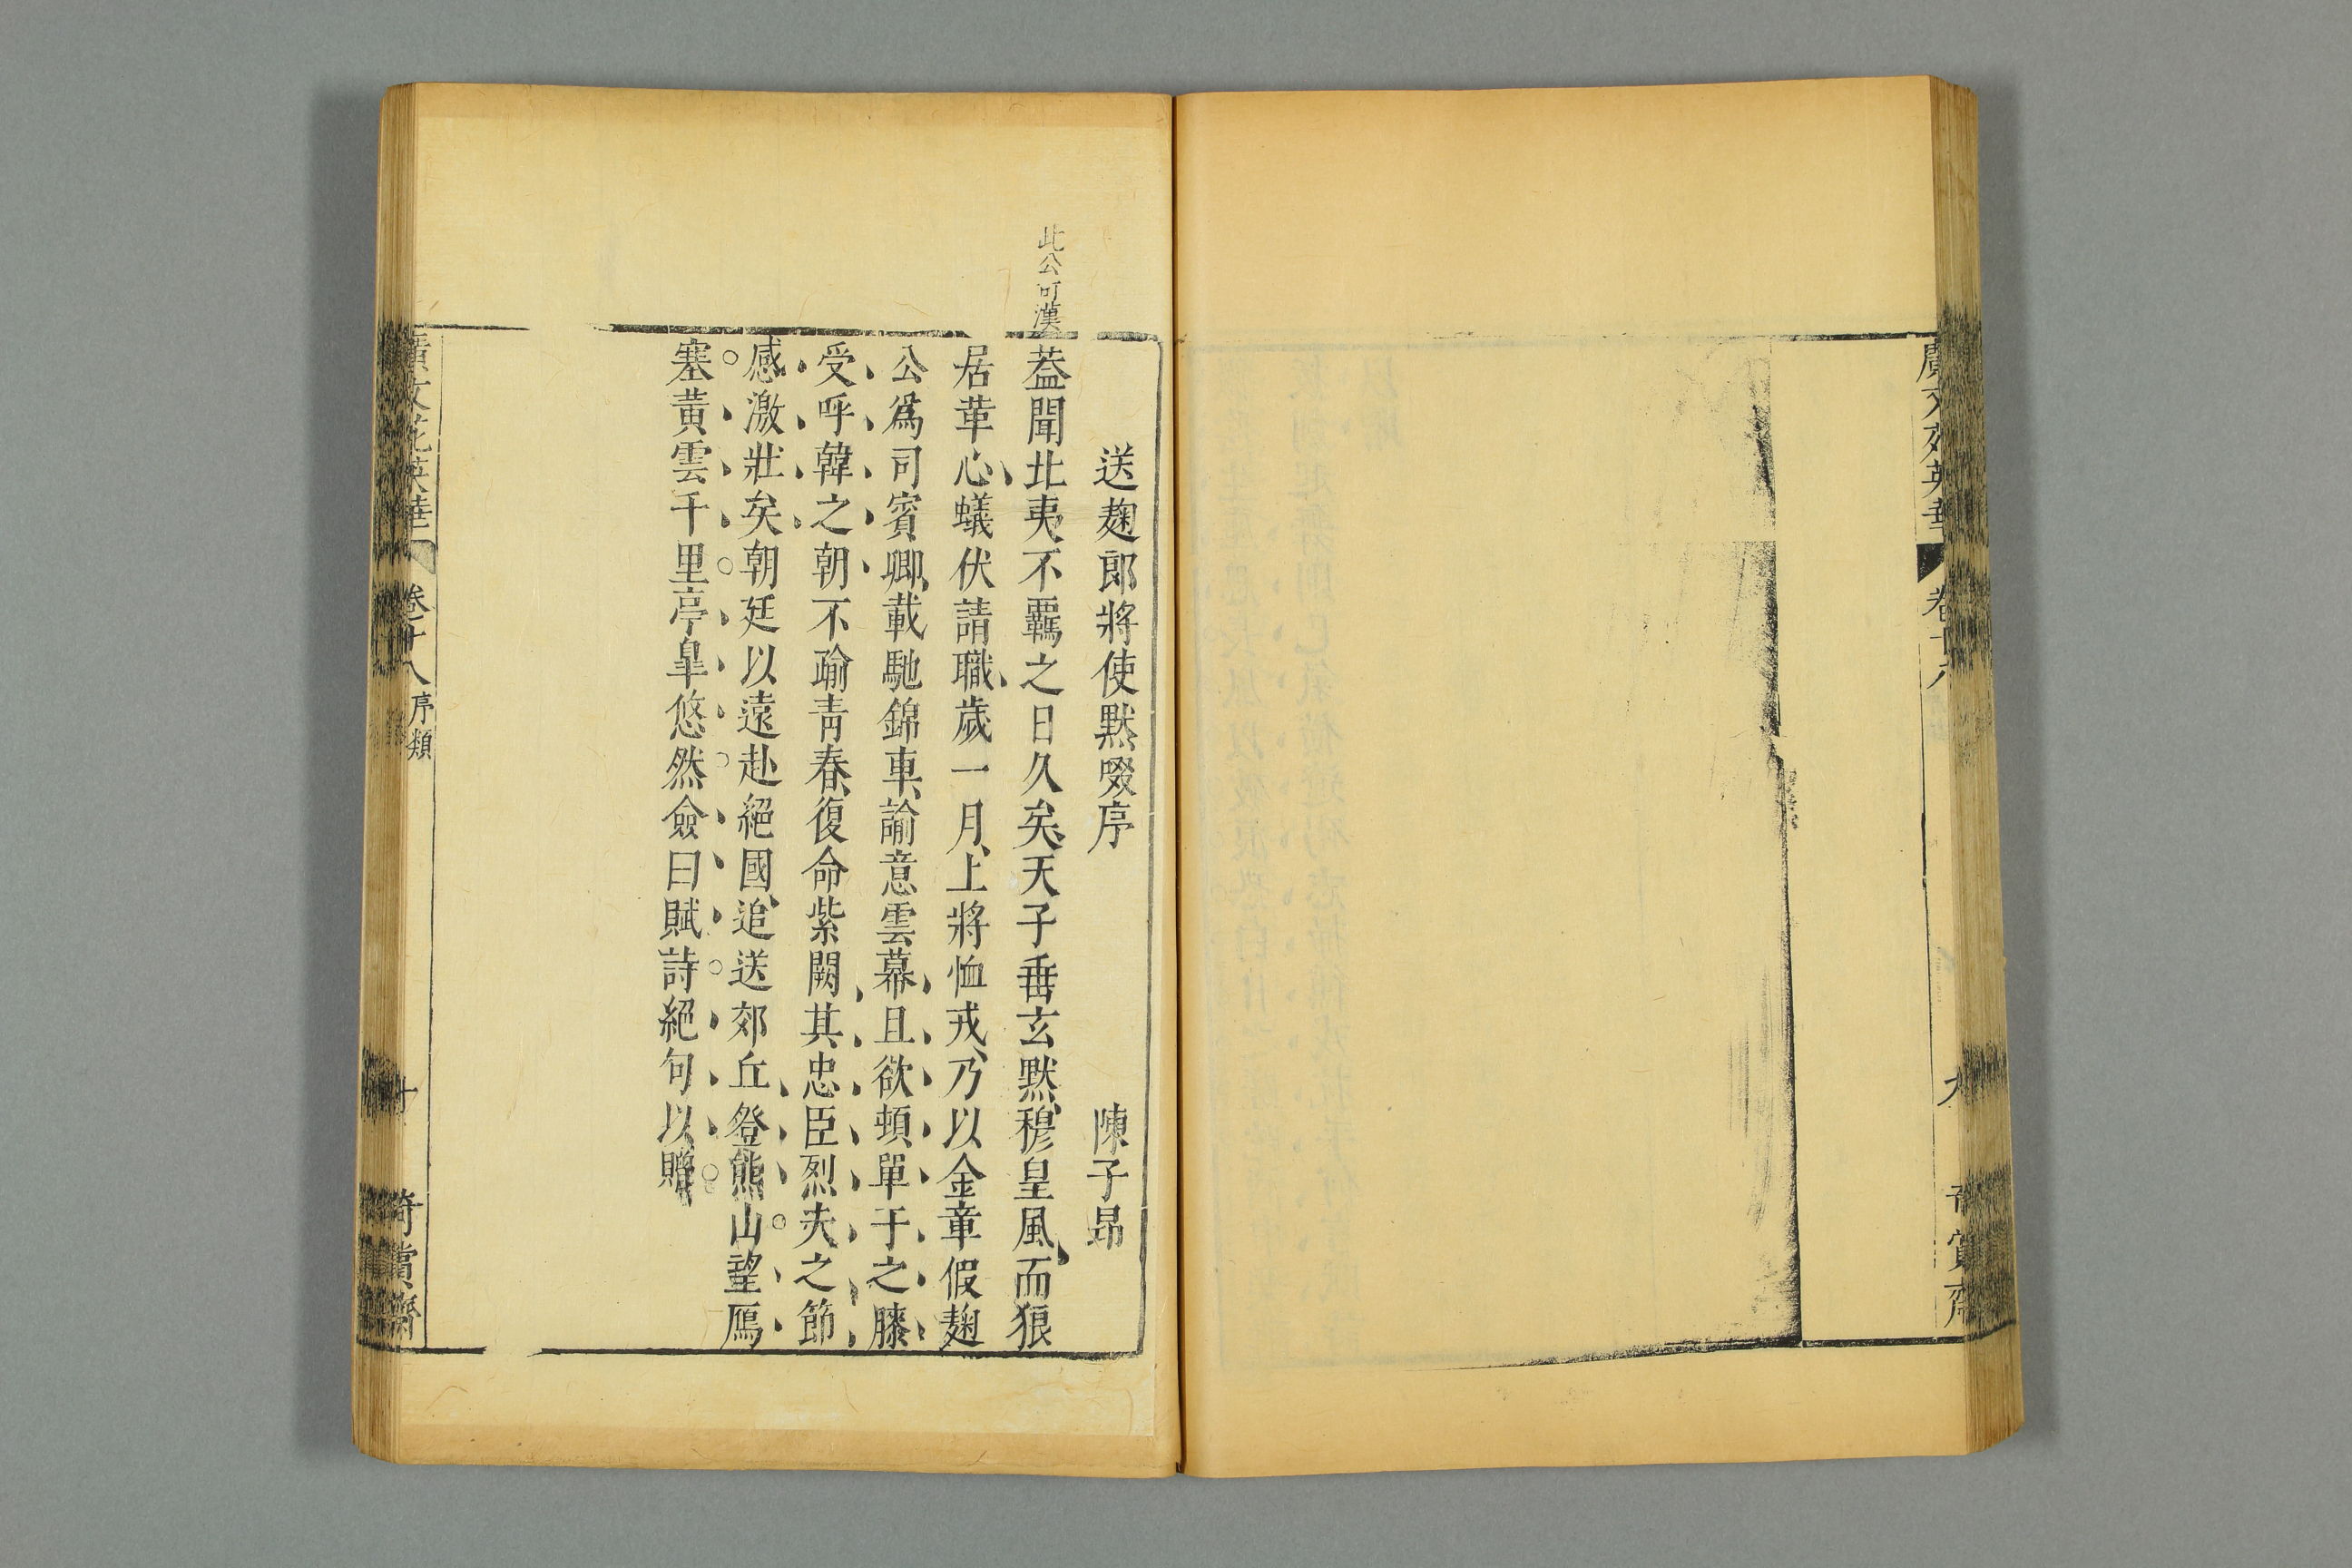 廣文苑英華 卷十八 九 奇賞齋
此公可漢
送麹郎將使默啜序 陳子昂
葢聞北夷不羈之日久矣天子垂玄默穆皇風而狼
居革心蟻伏請職歲一月上將恤戎乃以金章假麹
公爲司賓卿載馳錦車諭意雲幕且欲頓單于之膝
受呼韓之朝不踰青春復命紫闕其忠臣烈夫之節
感激壯矣朝廷以遠赴絕國追送郊丘登熊山望鴈
塞黃雲千里亭皐悠然僉曰賦詩絕句以贈
廣文苑英華 卷十八 序類 十 奇賞齋